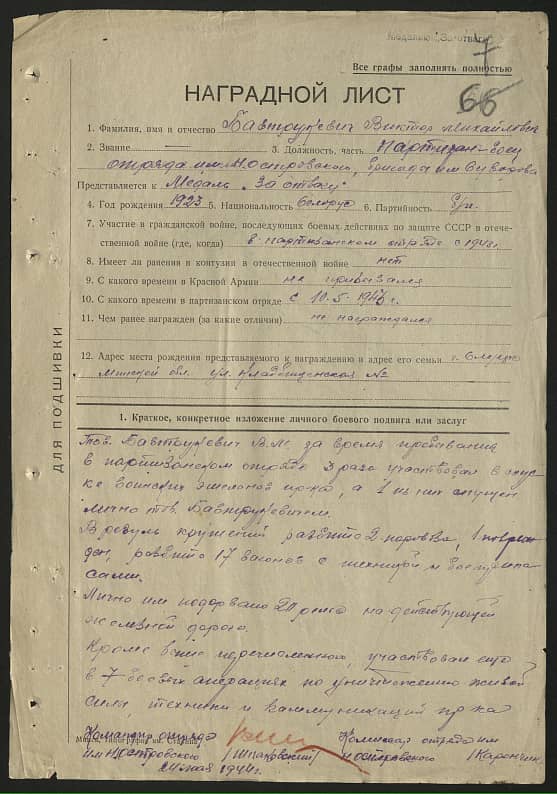 Медалью "За отвагу"
7
Все графы заполнять полностью
66
НАГРАДНОЙ ЛИСТ
1. Фамилия, имя и отчество Бавтрукевич Виктор Михайлович
2. Звание — 3. Должность, часть Партизан-боец
отряда им. Н. Островского, бригады им Суворова
Представляется к Медаль "За отвагу"
4. Год рождения 1923 5. Национальность белорус 6. Партийность б/п.
7. Участие в гражданской войне, последующих боевых действиях по защите СССР в отече-
ственной войне (где, когда) в партизанском отряде с 194 г.
8. Имеет ли ранения и контузии в отечественной войне нет
9. С какого времени в Красной Армии не призывался
10. С какого времени в партизанском отряде с 10.5.194 г.
11. Чем ранее награжден (за какие отличия) не награждался
12. Адрес места рождения представляемого к награждению и адрес его семьи г.
Минской обл. ул. Кладбищенская №
ДЛЯ ПОДШИВКИ
1. Краткое, конкретное изложение личного боевого подвига или заслуг
Тов. Бавтрукевич В.М. за время пребывания
в партизанском отряде 3 раза участвовал в спус-
ке воинских эшелонов пр-ка, а 1 из них спущен
лично тов. Бавтрукевичем.
В резуль крушений разбито 2 паровоза, 1 повреж-
ден, разбито 17 вагонов с техникой и боеприпа-
сами.
Лично им подорвано 20 рельс на действующей
железной дороге.
Кроме выше перечисленного, участвовал ещё
в 7 боевых операциях по уничтожению живой
силы, техники и коммуникаций пр-ка
Командир отряда Комиссар отряда им
Минск, Типография им. Сталина
им Н островского /Шпаковский/ Н островского /
мая 1944 г.